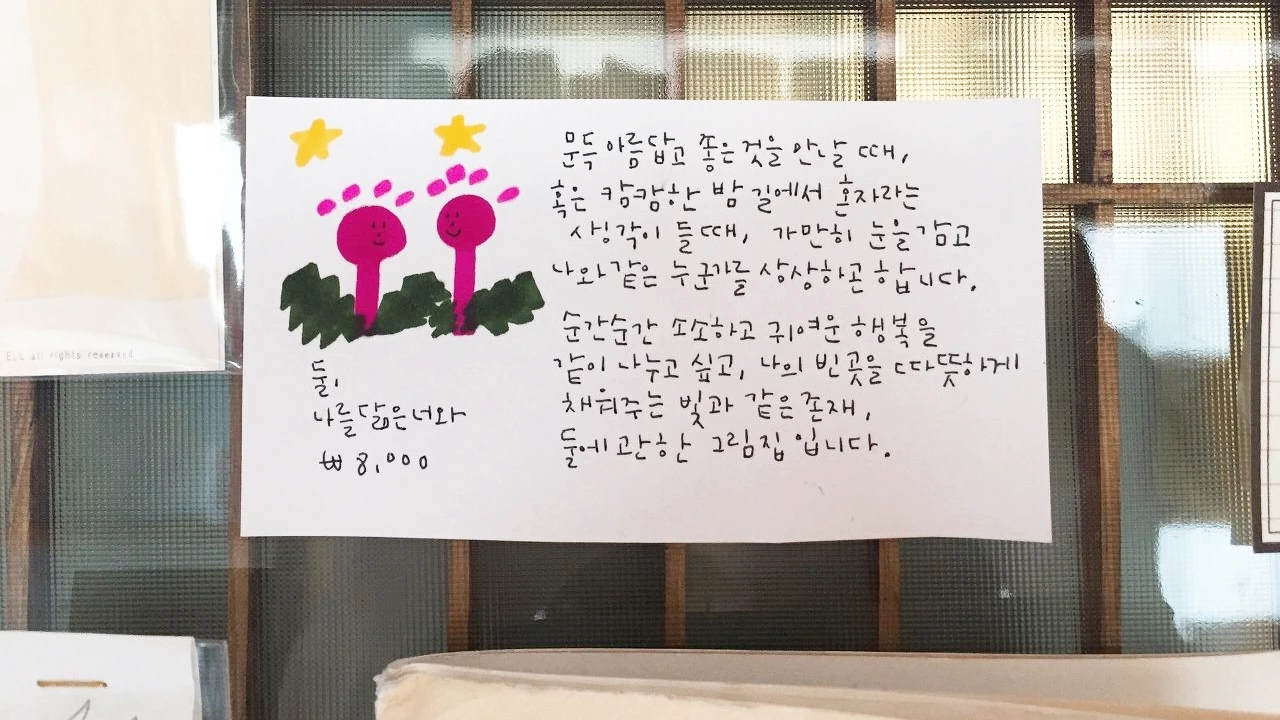 문득 아름답고 좋은것을 만날 때,
혹은 캄캄한 밤 길에서 혼자라는
생각이 들때, 가만히 눈을 감고
나와 같은 누군가를 상상하곤 합니다.
순간순간 소소하고 귀여운 행복을
같이 나누고 싶고, 나의 빈곳을 따뜻하게
채워주는 빛과 같은 존재,
둘에 관한 그림집 입니다.
둘,
나를 닮은 너와
₩ 8,000
ELL all rights reserved